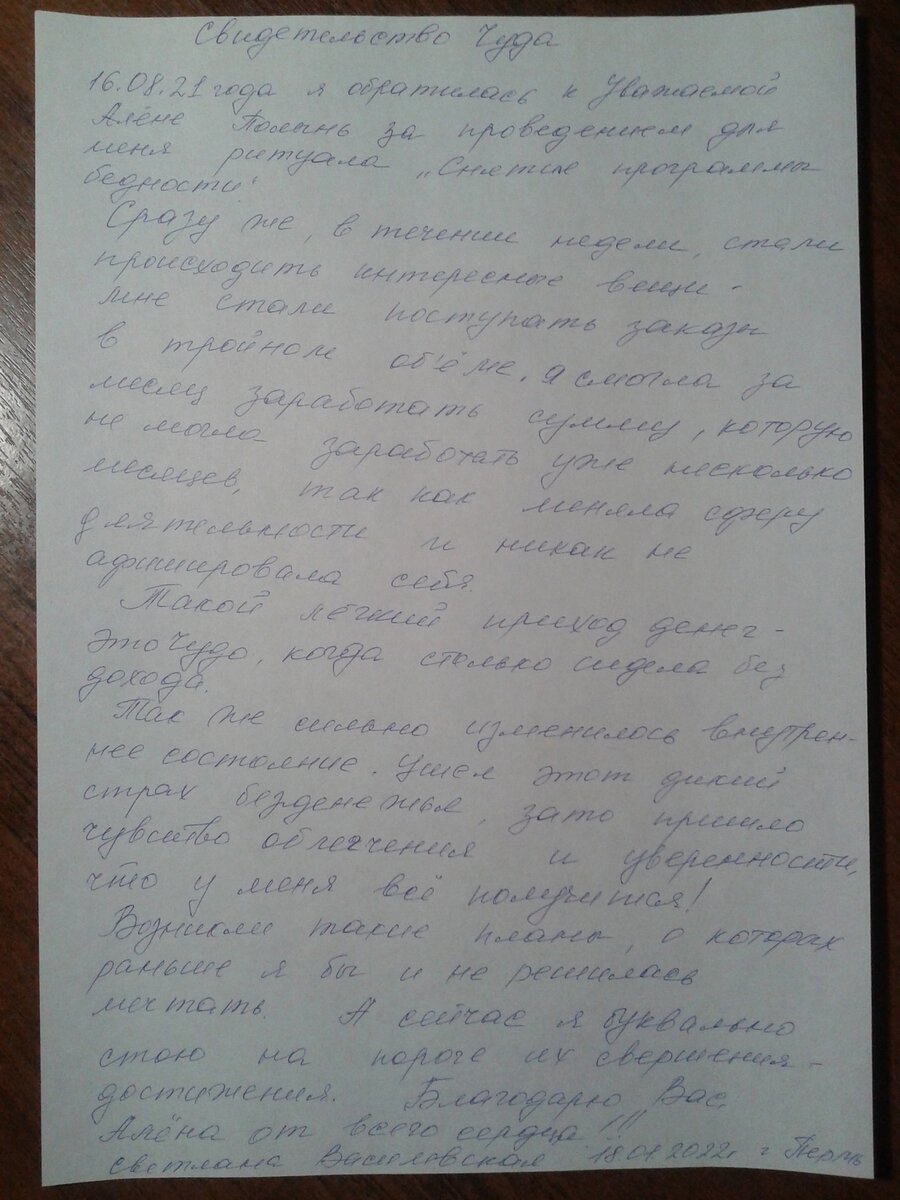 Свидетельство Чуда
16.08.21 года я обратилась к Уважаемой
Алёне Полынь за проведением для
меня ритуала „Снятие программы
бедности"
Сразу же, в течении недели, стали
происходить интересные вещи -
мне стали поступать заказы
в тройном об'ёме, я смогла за
месяц заработать сумму, которую
не могла заработать уже несколько
месяцев, так как меняла сферу
деятельности и никак не
афишировала себя.
Такой лёгкий приход денег -
это Чудо, когда столько сидела без
дохода.
Так же сильно изменилось внутрен-
нее состояние. Ушел этот дикий
страх безденежья, зато пришло
чувство облегчения и уверенности,
что у меня всё получится!
Возникли такие планы, о которых
раньше я бы и не решилась
мечтать. А сейчас я буквально
стою на пороге их свершения -
достижения. Благодарю Вас,
Алёна от всего сердца!!!
Светлана Василевская 18.01.2022г г Пермь